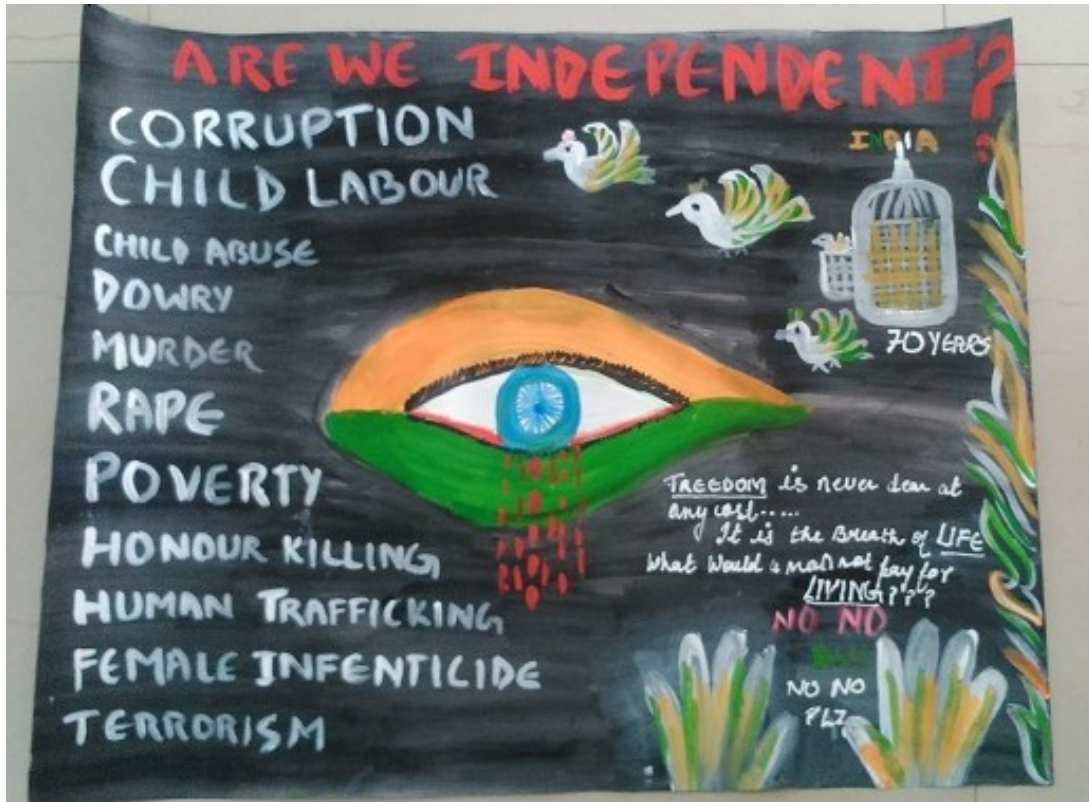 ARE WE INDEPENDENT?
CORRUPTION
CHILD LABOUR
CHILD ABUSE
DOWRY
MURDER
RAPE
POVERTY
HONOUR KILLING
HUMAN TRAFFICKING
FEMALE INFENTICIDE
TERRORISM
INDIA
70 YEARS
FREEDOM is never dear at
any cost.....
It is the Breath of LIFE
What would a man not pay for
LIVING???
NO NO
NO NO
PLZ